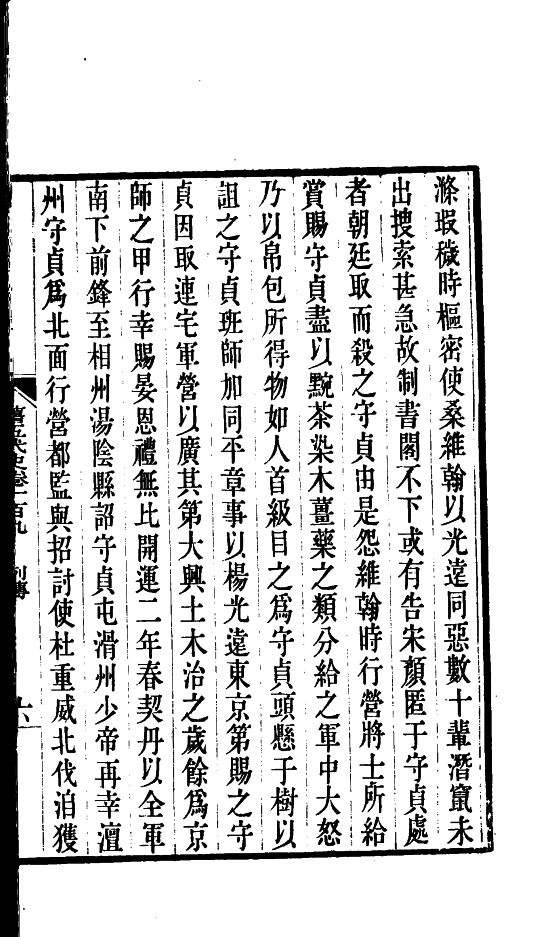 滌瑕穢時樞密使桑維翰以光遠同惡數十輩潛竄未
出搜索甚急故制書閣不下或有告宋顏匿于守貞處
者朝廷取而殺之守貞由是怨維翰時行營將士所給
賞賜守貞盡以黦茶染木薑藥之類分給之軍中大怒
乃以帛包所得物如人首級目之爲守貞頭懸于樹以
詛之守貞班師加同平章事以楊光遠東京第賜之守
貞因取連宅軍營以廣其第大興土木治之歲餘爲京
師之甲行幸賜宴恩禮無比開運二年春契丹以全軍
南下前鋒至相州湯陰縣詔守貞屯滑州少帝再幸澶
州守貞爲北面行營都監與招討使杜重威北伐洎獲
舊五代史卷一百九 列傳 六